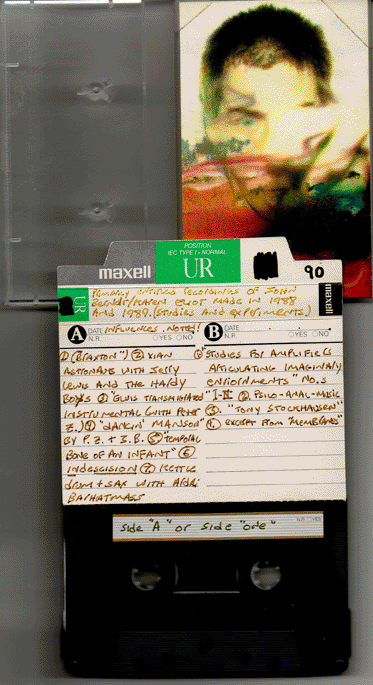 POSITION
IEC TYPE I • NORMAL
maxell UR 90
UR maxell
PRIMARILY UNTITLED RECORDINGS OF JOHN
BERNDT/KAREN ELIOT MADE IN 1988
AND 1989. (STUDIES AND EXPERIMENTS.)
A DATE INFLUENCES NOTED!
N.R. YES NO
B DATE
N.R. YES NO
① (BRAXTON") ② XIAN
ACTIONAXE WITH JERRY
LEWIS AND THE HARDY
BOYS ③ "ELVIS TRANSMIGRATED"
INSTRUMENTAL (WITH PETER
Z.) ④ "DANCIN' MANSON"
BY P.Z. + J.B. ⑤ "TEMPORAL
BONE OF AN INFANT" ⑥
INDESCISION ⑦ KETTLE
DRUM + SAX WITH
① "STUDIES FOR AMPLIFIERS
ARTICULATING IMAGINARY
ENVIORNMENTS" NO.S
"I-III ② PSILO-ANAL-MUSIC
③. "TONY STOCKHAUSEN"
④. EXCERPT FROM "MEMBRANES"
Side "A" or Side "one"
N.R. YES